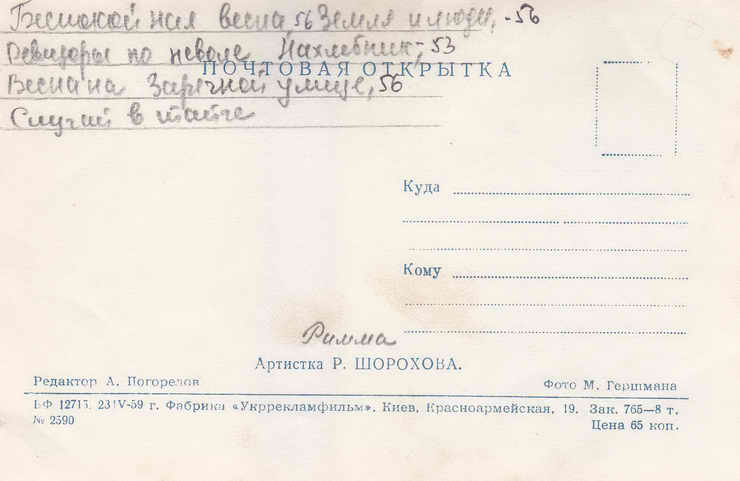 Беспокойная весна, 56 Земля и люди, - 56
Ревизоры по неволе Нахлебник, 53
ПОЧТОВАЯ ОТКРЫТКА
Весна на Заречной улице, 56
Случай в тайге
Куда
Кому
Римма
Артистка Р. ШОРОХОВА.
Редактор А. Погорелов
Фото М. Гершмана
БФ 12715. 231V-59 г. Фабрика «Укррекламфильм». Киев, Красноармейская, 19. Зак. 765—8 т.
№ 2590
Цена 65 коп.